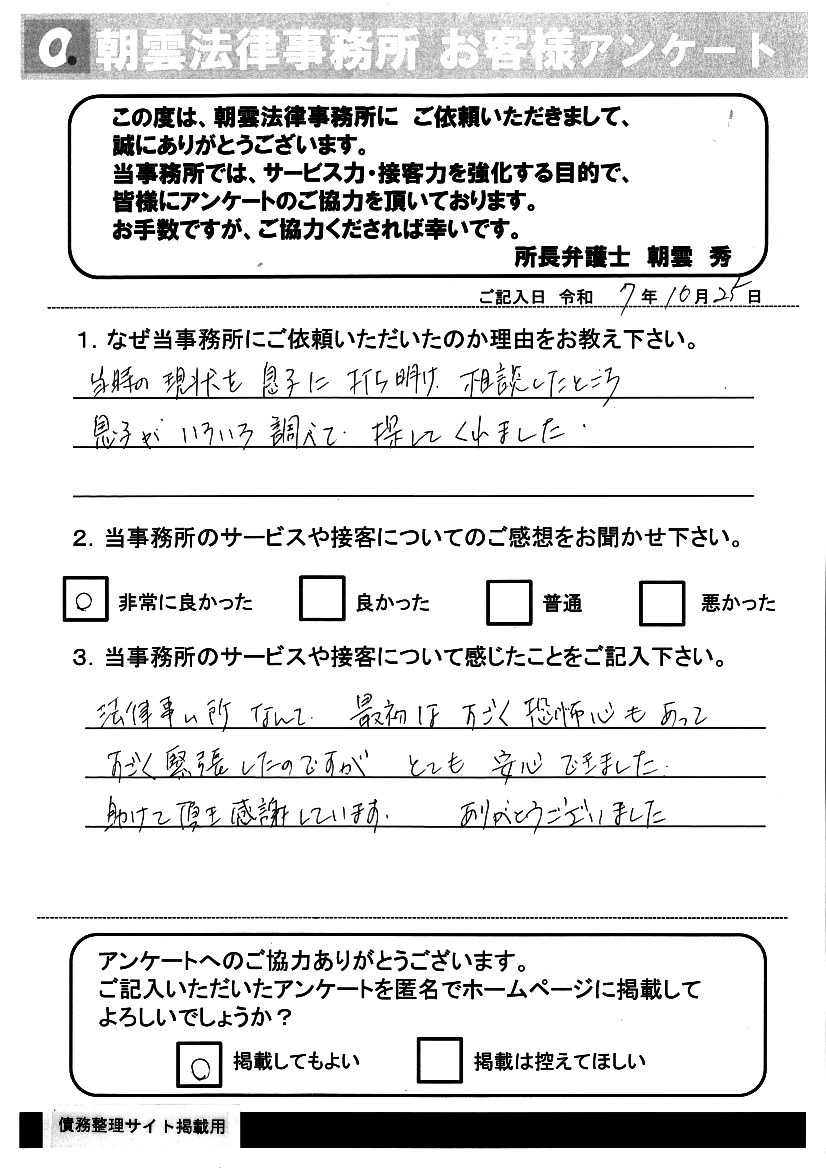 朝雲法律事務所 お客様アンケート
この度は、朝雲法律事務所に ご依頼いただきまして、
誠にありがとうございます。
当事務所では、サービス力・接客力を強化する目的で、
皆様にアンケートのご協力を頂いております。
お手数ですが、ご協力くだされば幸いです。
所長弁護士 朝雲 秀
ご記入日 令和 7年10月25日
1. なぜ当事務所にご依頼いただいたのか理由をお教え下さい。
当時の 現状を 息子に 打ち明け 相談したところ
息子が いろいろ 調べて 探してくれました.
2. 当事務所のサービスや接客についてのご感想をお聞かせ下さい。
○ 非常に良かった 良かった 普通 悪かった
3. 当事務所のサービスや接客について感じたことをご記入下さい。
法律事ム所 なんて 最初は すごく 恐怖心も あって
すごく 緊張したのですが とても 安心 できました.
助けて頂き 感謝しています. ありがとうございました
アンケートへのご協力ありがとうございます。
ご記入いただいたアンケートを匿名でホームページに掲載して
よろしいでしょうか？
○ 掲載してもよい 掲載は控えてほしい
債務整理サイト掲載用